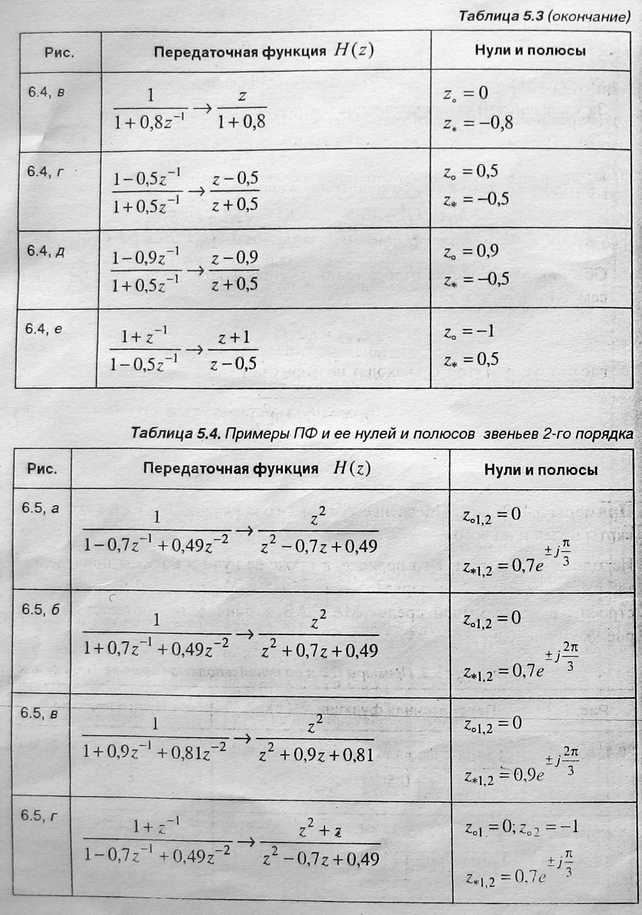 Таблица 5.3 (окончание)
Рис. Передаточная функция H(z) Нули и полюсы
6.4, в 1/(1+0,8z⁻¹) → z/(1+0,8) z₀ = 0
z* = −0,8
6.4, г (1−0,5z⁻¹)/(1+0,5z⁻¹) → (z−0,5)/(z+0,5) z₀ = 0,5
z* = −0,5
6.4, д (1−0,9z⁻¹)/(1+0,5z⁻¹) → (z−0,9)/(z+0,5) z₀ = 0,9
z* = −0,5
6.4, е (1+z⁻¹)/(1−0,5z⁻¹) → (z+1)/(z−0,5) z₀ = −1
z* = 0,5
Таблица 5.4. Примеры ПФ и ее нулей и полюсов звеньев 2-го порядка
Рис. Передаточная функция H(z) Нули и полюсы
6.5, а 1/(1−0,7z⁻¹+0,49z⁻²) → z²/(z²−0,7z+0,49) z₀1,2 = 0
z*1,2 = 0,7e^(±jπ/3)
6.5, б 1/(1+0,7z⁻¹+0,49z⁻²) → z²/(z²+0,7z+0,49) z₀1,2 = 0
z*1,2 = 0,7e^(±j2π/3)
6.5, в 1/(1+0,9z⁻¹+0,81z⁻²) → z²/(z²+0,9z+0,81) z₀1,2 = 0
z*1,2 = 0,9e^(±j2π/3)
6.5, г (1+z⁻¹)/(1−0,7z⁻¹+0,49z⁻²) → (z²+z)/(z²−0,7z+0,49) z₀1 = 0; z₀2 = −1
z*1,2 = 0,7e^(±jπ/3)